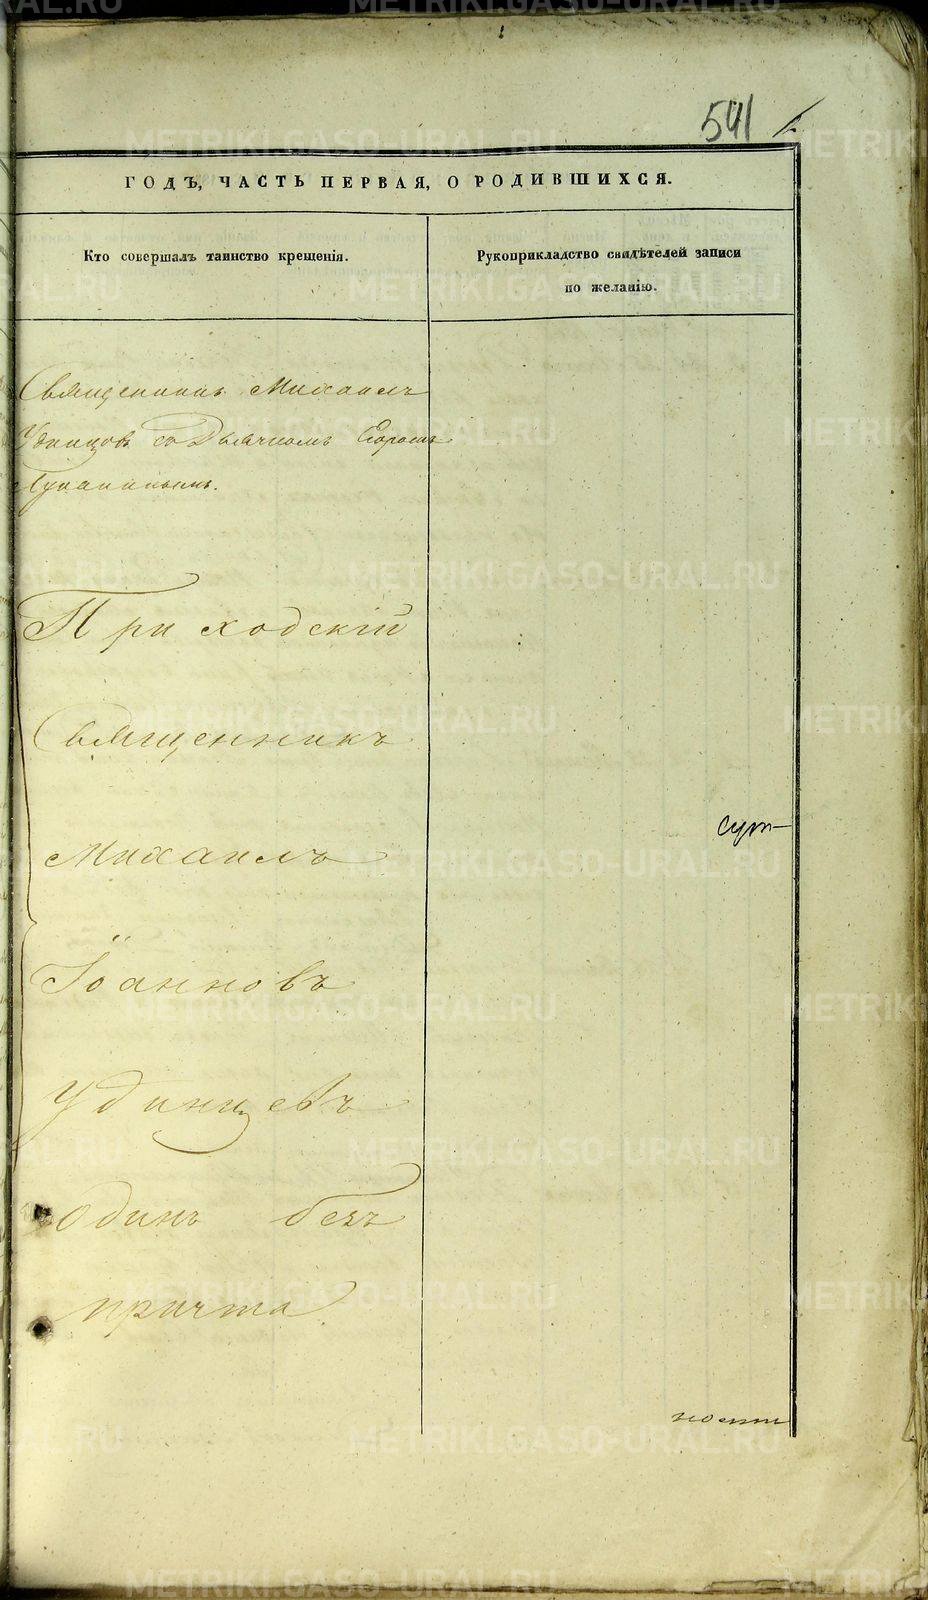 541
ГОДЪ, ЧАСТЬ ПЕРВАЯ, О РОДИВШИХСЯ.
Кто совершалъ таинство крещенія.
Рукоприкладство свидѣтелей записи
по желанію.
Священникъ Михаилъ
Удинцовъ съ Дьячкомъ
При ходскій
Священникъ
Михаилъ
сут-
Іоанновъ
Удинцевъ
Одинъ безъ
причта
METRIKI.GASO-URAL.RU